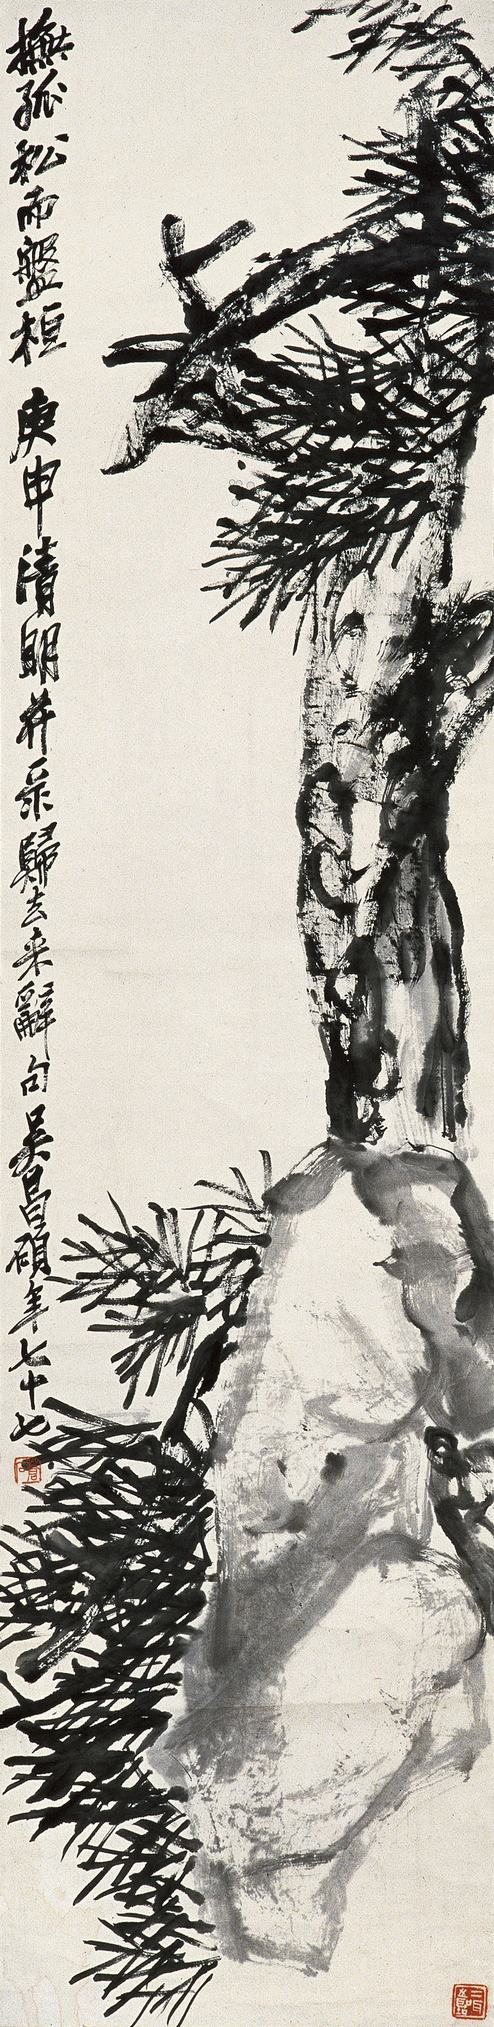 撫孤松而盤桓 庚申清明并采歸去来辭句吳昌碩年七十七